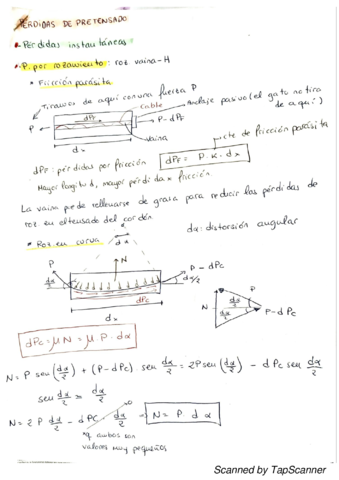 PÉRDIDAS DE PRETENSADO
• Pérdidas instantáneas
• P. por rozamiento: roz vaina-H
* Fricción parásita
Tiramos de aquí con una fuerza P
cable
Anclaje pasivo (el gato no tira de aquí)
P
dPf
P - dPf
vaina
dx
cte de fricción parásita
dPf: pérdidas por fricción
dPf = P · K · dx
Mayor longitud, mayor pérdida x fricción.
La vaina puede rellenarse de grasa para reducir las pérdidas de
roz en el tensado del cordón.
dα: distorsión angular
* Roz. en curva
dx
P
N
P - dPc
dα/2
dα/2
dPc
dx
N
P
dα/2
dα/2
P - dPc
dPc = μN = μ P. dα
N = P sen (dα/2) + (P - dPc) sen dα/2 = 2P sen (dα/2) - dPc sen dα/2
sen dα/2 ≈ dα/2
N = 2P dα/2 - dPc · dα/2 → 0
N = P dα
*q ambos son
valores muy pequeños
Scanned by TapScanner